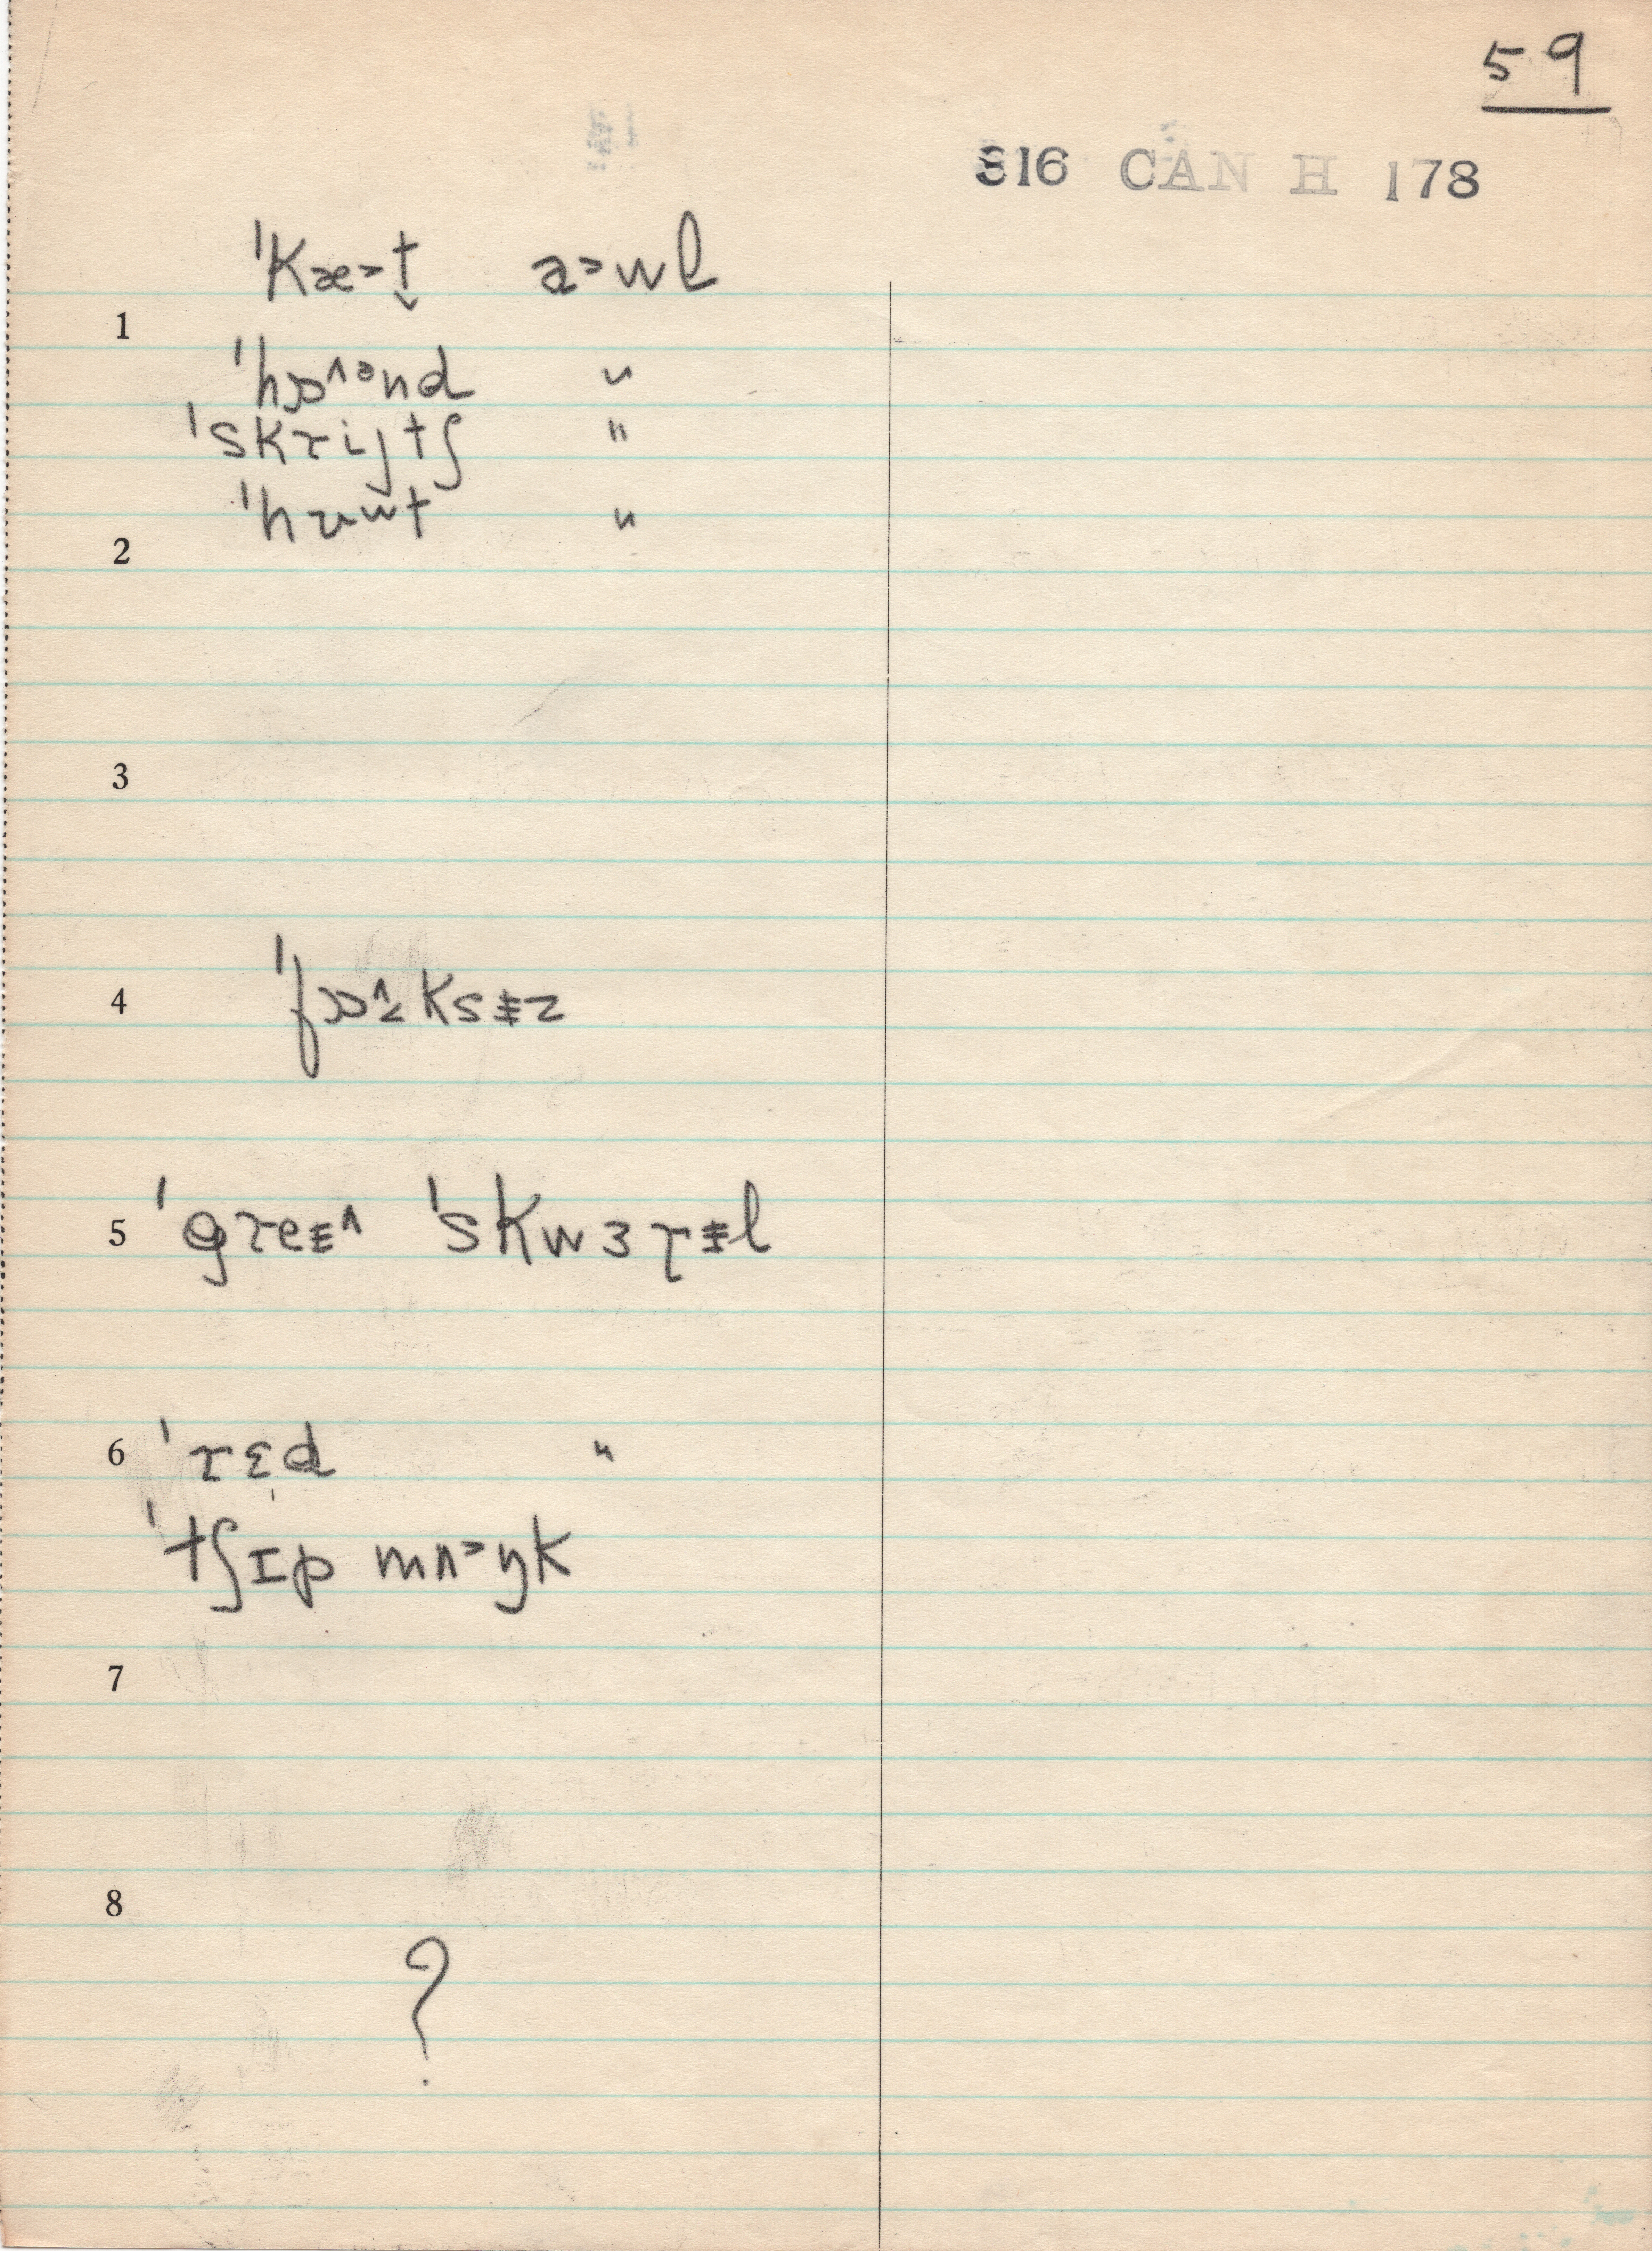 59
816 CAN H 178
ˈkæ˃t̬ a˃wl
1
ˈhɒ˄ᵊnd "
ˈskrijtʃ "
ˈhʊwt "
2
3
4 ˈfɒ˄ksɨz
5 ˈgreɨ˄ ˈskwɜrɨl
6 ˈrɛd "
ˈtʃɪp mʌ˃ŋk
7
8
?